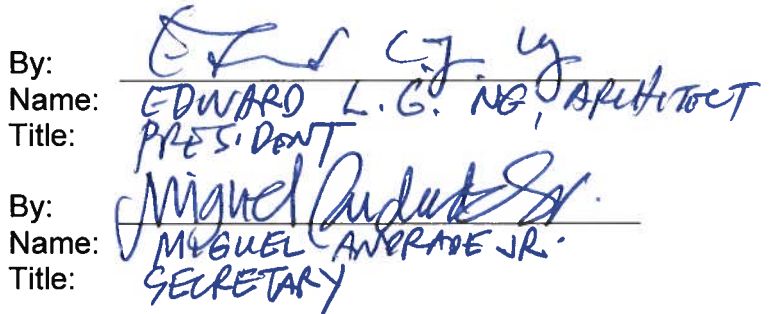 By:
Name: EDWARD L. G. NG, ARCHITECT
Title: PRESIDENT
By: Miguel Andrade Jr.
Name: MIGUEL ANDRADE JR.
Title: SECRETARY